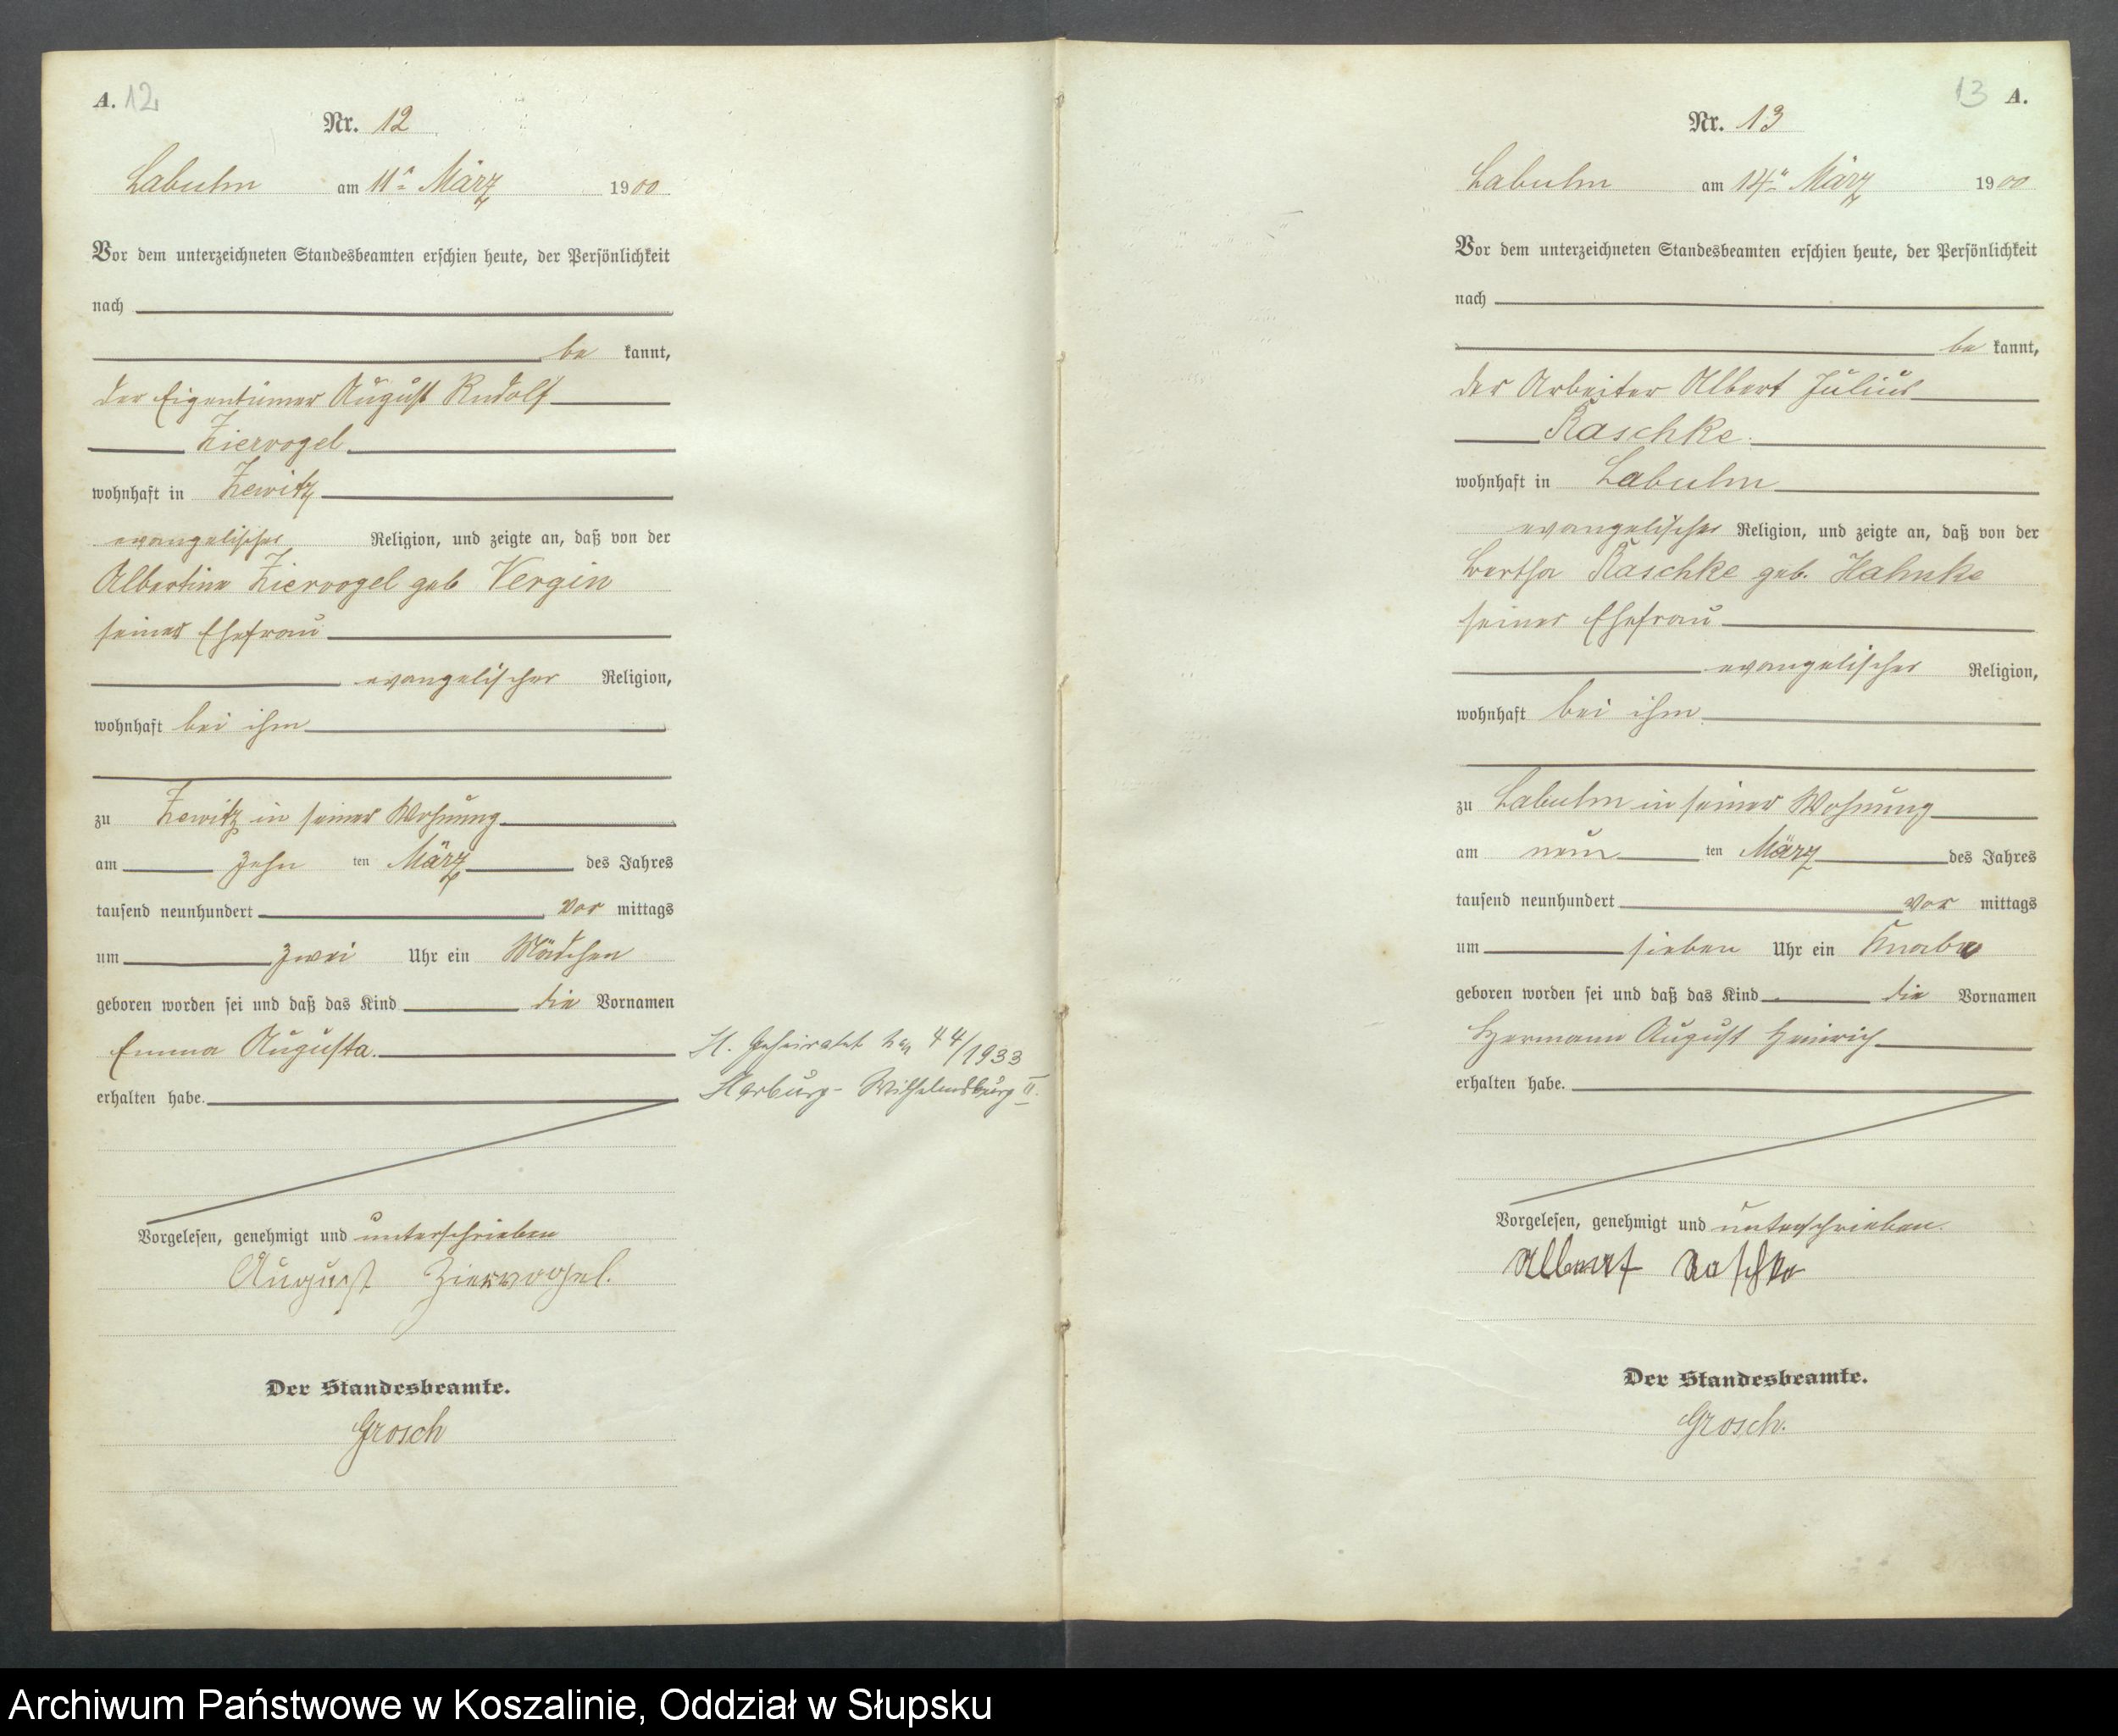 A. 12
Nr. 12
Labuhn am 11n März 1900
Vor dem unterzeichneten Standesbeamten erschien heute, der Persönlichkeit
nach
be kannt,
der Eigentümer August Rudolf
Ziervogel
wohnhaft in Zewitz
evangelischer Religion, und zeigte an, daß von der
Albertine Ziervogel geb Vergin
seiner Ehefrau
evangelischer Religion,
wohnhaft bei ihm
zu Zewitz in seiner Wohnung
am zehn ten März des Jahres
tausend neunhundert vor mittags
um zwei Uhr ein Mädchen
geboren worden sei und daß das Kind die Vornamen
Emma Augusta.
erhalten habe.
Vorgelesen, genehmigt und unterschrieben
August Ziervogel.
Der Standesbeamte.
Grosch
H. Geheiratet 44/1933
Harburg-Wilhelmsburg II.
13 A.
Nr. 13
Labuhn am 14n März 1900
Vor dem unterzeichneten Standesbeamten erschien heute, der Persönlichkeit
nach
be kannt,
der Arbeiter Albert Julius
Raschke.
wohnhaft in Labuhn
evangelischer Religion, und zeigte an, daß von der
Bertha Raschke geb. Hahnke
seiner Ehefrau
evangelischer Religion,
wohnhaft bei ihm
zu Labuhn in seiner Wohnung
am neun ten März des Jahres
tausend neunhundert vor mittags
um sieben Uhr ein Knabe
geboren worden sei und daß das Kind die Vornamen
Hermann August Heinrich
erhalten habe.
Vorgelesen, genehmigt und unterschrieben.
Albert Raschke
Der Standesbeamte.
Grosch.
Archiwum Państwowe w Koszalinie, Oddział w Słupsku